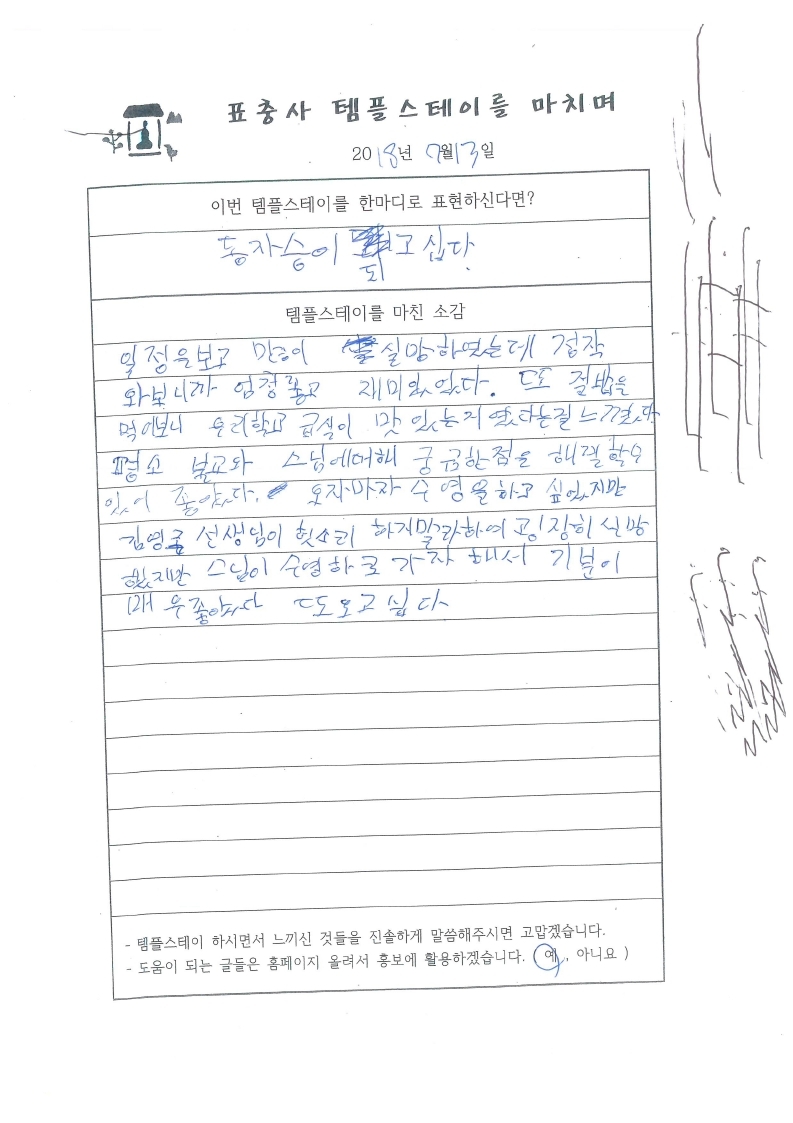 표충사 템플스테이를 마치며
2018년 7월13일
이번 템플스테이를 한마디로 표현하신다면?
동자승이 되고 십다
템플스테이를 마친 소감
일정을보고 만이 실망하였는데 겁작
와보니까 엄청좋고 재미있었다. 또또 절밥을
먹어보니 우리학교 급실이 맛있는지였다는걸 느꼈다
평소 불교와 스님에대해 궁금한점을 해결할수
있어 좋았다. 오자마자 수영을하고 싶었지만
김영 선생님이 헛소리 하지말라하여 굉장히 실망
했지만 스님이 수영하로 가자 해서 기분이
매우좋았다 또오고십다
- 템플스테이 하시면서 느끼신 것들을 진솔하게 말씀해주시면 고맙겠습니다.
- 도움이 되는 글들은 홈페이지 올려서 홍보에 활용하겠습니다. ( 예 , 아니요 )